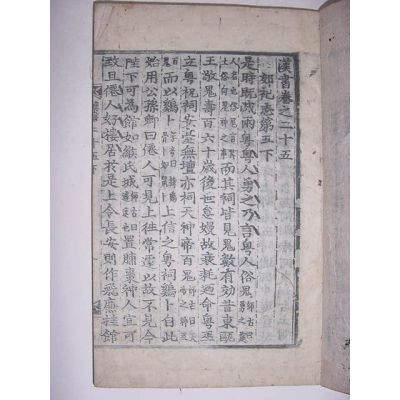 漢書卷之二十五
郊祀志第五下
是時既滅兩粤粤人勇之乃言粤人俗鬼師古曰勇之粤
人名也俗鬼言其土俗尚鬼神之事而其祠皆見鬼數有效昔東甌
王敬鬼壽百六十歲後世怠嫚故衰耗迺命粤巫
立粤祝祠安臺無壇亦祠天神帝百鬼
而以雞卜上信之粤祠雞卜自此
始用公孫卿曰僊人可見上往常遽以故不見今
陛下可為館如緱氏城師古曰置脯棗神人宜可
致且僊人好樓居於是上令長安則作飛廉桂館